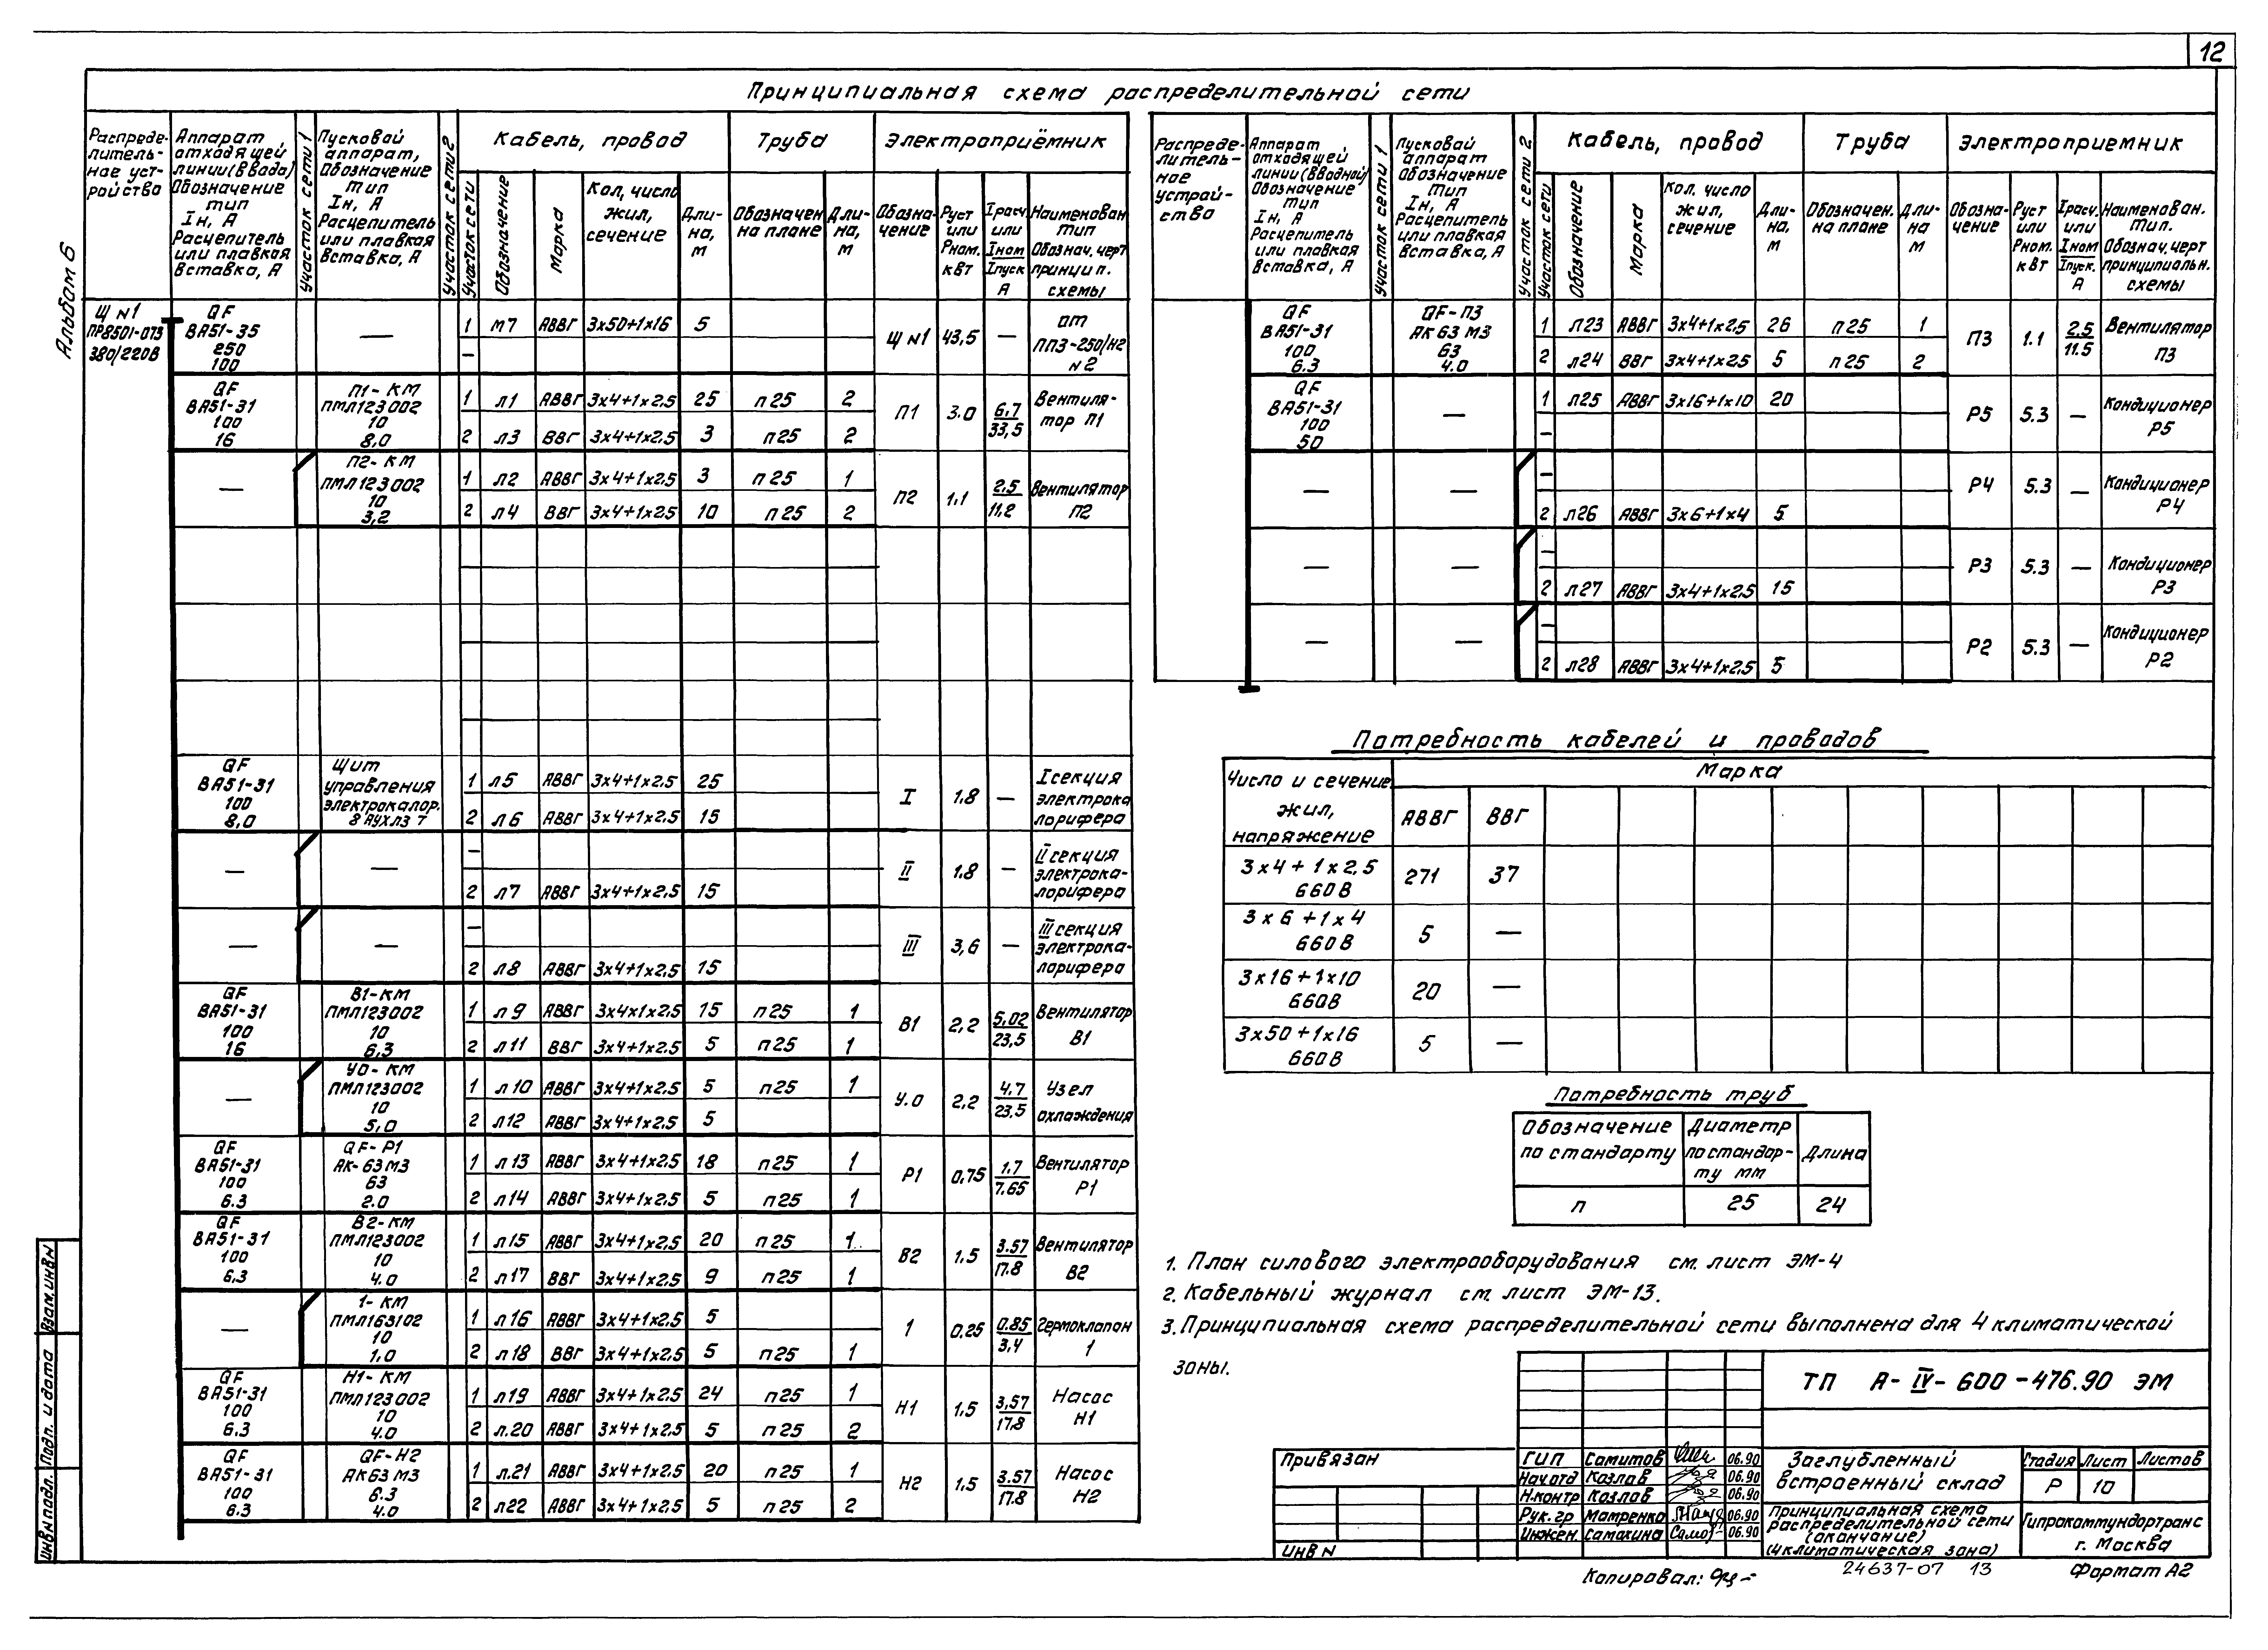 12
Альбом 6
Принципиальная схема распределительной сети
Распреде-
литель-
ное уст-
ройство
Аппарат
отходящей
линии (ввода)
Обозначение
тип
Iн, А
Расцепитель
или плавкая
вставка, А
Участок сети 1
Пусковой
аппарат,
Обозначение
тип
Iн, А
Расцепитель
или плавкая
вставка, А
Участок сети 2
Кабель, провод
Труба
Электроприёмник
Участок сети
Обозначение
Марка
Кол, число
жил,
сечение
Дли-
на,
м
Обозначен
на плане
Дли-
на,
м
Обозна-
чение
Руст
или
Рном.
кВт
Iрасч.
или
Iном
Iпуск
А
Наименован
тип
Обознач. черт
принцип.
схемы
Щ N1
ПР8501-073
380/220В
QF
ВА51-35
250
100
—
1 М7 АВВГ 3х50+1х16 5
—
Щ N1 43,5 —
от
ПП3-250/Н2
N2
QF
ВА51-31
100
16
П1-КМ
ПМЛ123002
10
8,0
1 Л1 АВВГ 3х4+1х2,5 25 п25 2
2 Л3 ВВГ 3х4+1х2,5 3 п25 2
П1 3.0 6.7/33,5
Вентиля-
тор П1
—
П2-КМ
ПМЛ123002
10
3,2
1 Л2 АВВГ 3х4+1х2,5 3 п25 1
2 Л4 ВВГ 3х4+1х2,5 10 п25 2
П2 1,1 2,5/11,2
Вентилятор
П2
QF
ВА51-31
100
8,0
Щит
управления
электрокалор.
8 АУХЛ3 Т
1 Л5 АВВГ 3х4+1х2,5 25
2 Л6 АВВГ 3х4+1х2,5 15
I 1,8 —
I секция
электрока
лорифера
— —
—
2 Л7 АВВГ 3х4+1х2,5 15
II 1,8 —
II секция
электрока-
лорифера
— —
—
2 Л8 АВВГ 3х4+1х2,5 15
III 3,6 —
III секция
электрока-
лорифера
QF
ВА51-31
100
16
В1-КМ
ПМЛ123002
10
6,3
1 Л9 АВВГ 3х4х1х2,5 15 п25 1
2 Л11 ВВГ 3х4+1х2,5 5 п25 1
В1 2,2 5,02/23,5
Вентилятор
В1
—
УО-КМ
ПМЛ123002
10
5,0
1 Л10 АВВГ 3х4+1х2,5 5 п25 1
2 Л12 АВВГ 3х4+1х2,5 5
У.О 2,2 4,7/23,5
Узел
охлаждения
QF
ВА51-31
100
6.3
QF-Р1
АК-63М3
63
2.0
1 Л13 АВВГ 3х4+1х2,5 18 п25 1
2 Л14 АВВГ 3х4+1х2,5 5 п25 1
Р1 0,75 1,7/7,65
Вентилятор
Р1
QF
ВА51-31
100
6,3
В2-КМ
ПМЛ123002
10
4.0
1 Л15 АВВГ 3х4+1х2,5 20 п25 1
2 Л17 ВВГ 3х4+1х2,5 9 п25 1
В2 1,5 3.57/17.8
Вентилятор
В2
—
1-КМ
ПМЛ163102
10
1,0
1 Л16 АВВГ 3х4+1х2,5 5
2 Л18 ВВГ 3х4+1х2,5 5 п25 1
1 0,25 0.85/3,4
Гермоклапан
1
QF
ВА51-31
100
6.3
Н1-КМ
ПМЛ123002
10
4.0
1 Л19 АВВГ 3х4+1х2,5 24 п25 1
2 Л.20 АВВГ 3х4+1х2,5 5 п25 2
Н1 1,5 3,57/17,8
Насос
Н1
QF
ВА51-31
100
6.3
QF-Н2
АК63 М3
6.3
4.0
1 Л.21 АВВГ 3х4+1х2,5 20 п25 1
2 Л22 АВВГ 3х4+1х2,5 5 п25 2
Н2 1,5 3.57/17.8
Насос
Н2
Распреде-
литель-
ное
устрой-
ство
Аппарат
отходящей
линии (вводной)
Обозначение
тип
Iн, А
Расцепитель
или плавкая
вставка, А
Участок сети 1
Пусковой
аппарат
Обозначение
Тип
Iн, А
Расцепитель
или плавкая
вставка, А
Участок сети 2
Кабель, провод
Труба
Электроприемник
Участок сети
Обозначение
Марка
Кол. число
жил,
сечение
Дли-
на,
м
Обозначен.
на плане
Дли-
на
м
Обозна-
чение
Руст
или
Рном.
кВт
Iрасч.
или
Iном
Iпуск.
А
Наименован.
тип.
Обознач. черт
принципиальн.
схемы
QF
ВА51-31
100
6.3
QF-П3
АК63 М3
63
4.0
1 Л23 АВВГ 3х4+1х2,5 26 п25 1
2 Л24 ВВГ 3х4+1х2,5 5 п25 2
П3 1.1 2.5/11.5
Вентилятор
П3
QF
ВА51-31
100
50
—
1 Л25 АВВГ 3х16+1х10 20
—
Р5 5.3 —
Кондиционер
Р5
— —
—
2 Л26 АВВГ 3х6+1х4 5
Р4 5.3 —
Кондиционер
Р4
— —
—
2 Л27 АВВГ 3х4+1х2,5 15
Р3 5.3 —
Кондиционер
Р3
— —
—
2 Л28 АВВГ 3х4+1х2,5 5
Р2 5.3 —
Кондиционер
Р2
Потребность кабелей и проводов
Число и сечение
жил,
напряжение
Марка
АВВГ ВВГ
3х4+1х2,5
660В
271 37
3х6+1х4
660В
5 —
3х16+1х10
660В
20 —
3х50+1х16
660В
5 —
Потребность труб
Обозначение
по стандарту
Диаметр
по стандар-
ту мм
Длина
п 25 24
1. План силового электрооборудования см. лист ЭМ-4
2. Кабельный журнал см. лист ЭМ-13.
3. Принципиальная схема распределительной сети выполнена для 4 климатической
зоны.
ТП А-IV-600-476.90 ЭМ
Привязан
ИНВ N
ГИП Самитов 06.90
Нач.отд Козлов 06.90
Н.контр Козлов 06.90
Рук.гр Матренко 06.90
Инжен. Самакина 06.90
Заглубленный
встроенный склад
Стадия Лист Листов
Р 10
Принципиальная схема
распределительной сети
(окончание)
(4 климатическая зона)
Гипрокоммундортранс
г. Москва
Копировал:
24637-07 13
Формат А2
Взам.инв N
Подп. и дата
Инв N подл.